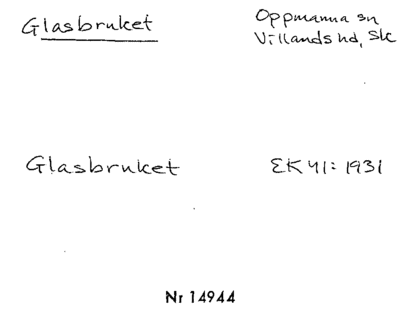 Glasbruket
Oppmanna sn
Villands hd, Skå
Glasbruket
EK 41: 1931
Nr 14944